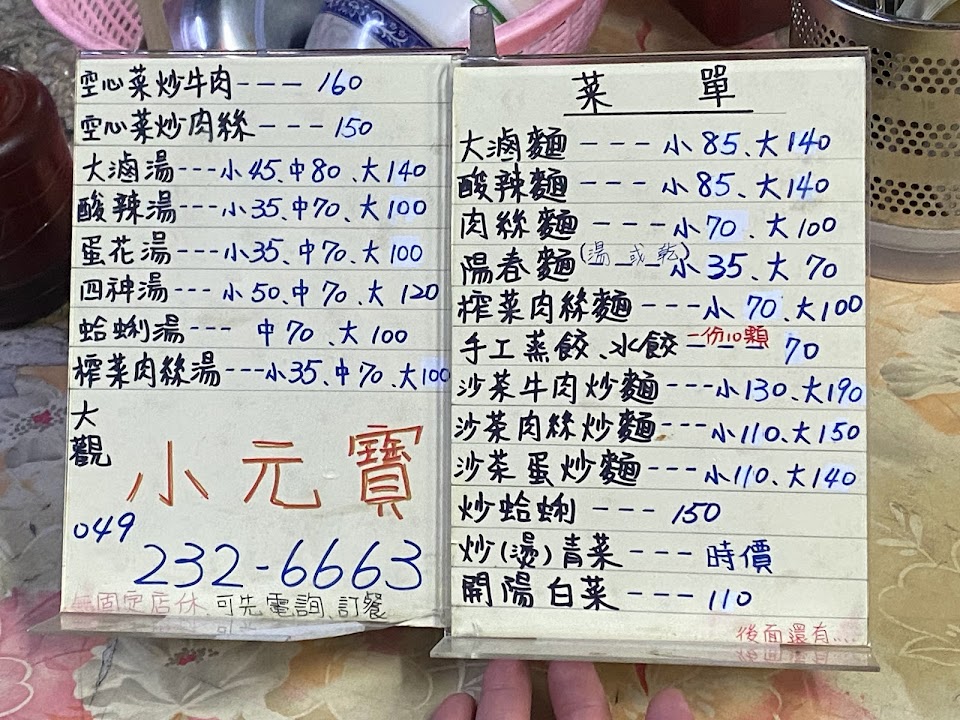 空心菜炒牛肉--- 160
空心菜炒肉絲--- 150
大滷湯---小45、中80、大140
酸辣湯---小35、中70、大100
蛋花湯---小35、中70、大100
四神湯---小50、中70、大120
蛤蜊湯--- 中70、大100
榨菜肉絲湯---小35、中70、大100
大觀
小元寶
049
232-6663
無固定店休 可先電詢、訂餐
菜 單
大滷麵---小85、大140
酸辣麵---小85、大140
肉絲麵---小70、大100
陽春麵(湯或乾)--小35、大70
榨菜肉絲麵---小70、大100
手工蒸餃、水餃一份10顆--- 70
沙菜牛肉炒麵---小130、大190
沙菜肉絲炒麵---小110、大150
沙茶蛋炒麵---小110、大140
炒蛤蜊---150
炒(燙)青菜---時價
開陽白菜---110
後面還有....